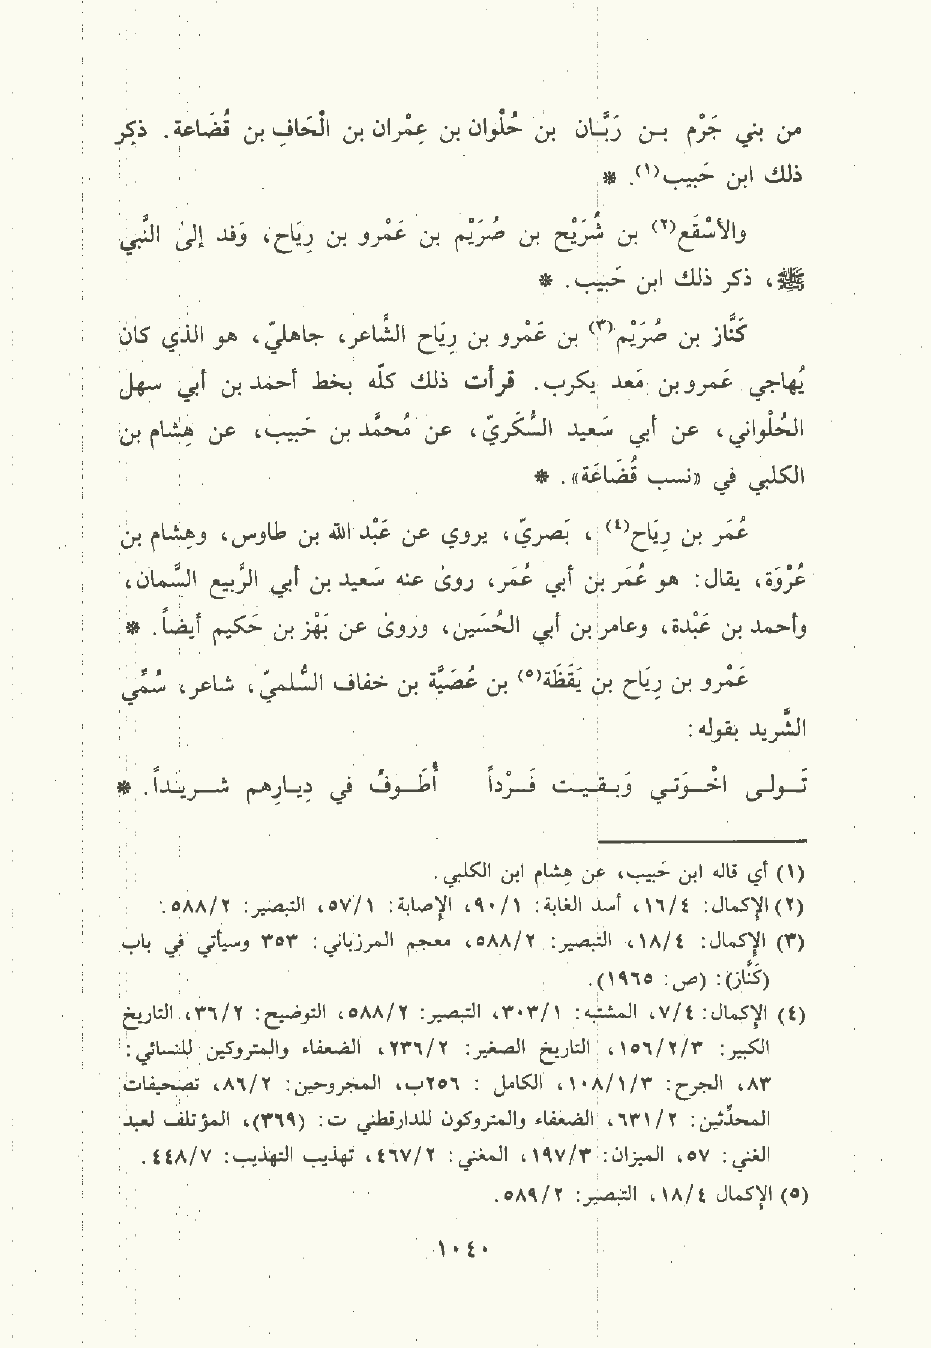 من بني جَرْم بـن رَبَّـان بن حُلْوان بن عِمْران بن الْحَافِ بن قُضَاعة. ذكِر
ذلك ابن حَبيب(١). *
والأَسْقَع(٢) بن شُرَيْح بن صُرَيْم بن عَمْرو بن رِيَاح، وَفد إلىٰ النَّبي
ﷺ، ذكر ذلك ابن حَبيب. *
كَنَّاز بن صُرَيْم(٣) بن عَمْرو بن رِيَاح الشاعر، جاهليّ، هو الذي كان
يُهاجي عَمرو بن مَعد يكرب. قرأت ذلك كلّه بخط أحمد بن أبي سهل
الحُلْواني، عن أبي سَعيد السُّكَّريّ، عن مُحمَّد بن حَبيب، عن هِشام بن
الكلبي في «نسب قُضَاعَة». *
عُمَر بن رِيَاح(٤)، بَصريّ، يروي عن عَبْد الله بن طاوس، وهِشام بن
عُرْوَة، يقال: هو عُمَر بن أبي عُمَر، روىٰ عنه سَعيد بن أبي الرَّبيع السَّمان،
وأحمد بن عَبْدة، وعامر بن أبي الحُسَين، وروىٰ عن بَهْز بن حَكيم أيضاً. *
عَمْرو بن رِيَاح بن يَقَظَة(٥) بن عُصَيَّة بن خفاف السُّلميّ، شاعر، سُمِّي
الشَّريد بقوله:
تَـــولـى اخْـــوَتـي وَبَـقـيـــت فَـــرْداً أُطَـــوفُ في دِيـارِهم شـــريـداً. *
(١) أي قاله ابن حَبيب، عن هِشام ابن الكلبي.
(٢) الإكمال: ١٦/٤، أسد الغابة: ٩٠/١، الإصابة: ٥٧/١، التبصير: ٥٨٨/٢.
(٣) الإكمال: ١٨/٤، التبصير: ٥٨٨/٢، معجم المرزباني: ٣٥٣ وسيأتي في باب
(كَنَّاز): (ص: ١٩٦٥).
(٤) الإكمال: ٧/٤، المشتبه: ٣٠٣/١، التبصير: ٥٨٨/٢، التوضيح: ٣٦/٢، التاريخ
الكبير: ١٥٦/٢/٣، التاريخ الصغير: ٢٣٦/٢، الضعفاء والمتروكين للنسائي:
٨٣، الجرح: ١٠٨/١/٣، الكامل : ٢٥٦ب، المجروحين: ٨٦/٢، تصحيفات
المحدِّثين: ٦٣١/٢، الضعفاء والمتروكون للدارقطني ت: (٣٦٩)، المؤتلف لعبد
الغني: ٥٧، الميزان: ١٩٧/٣، المغني: ٤٦٧/٢، تهذيب التهذيب: ٤٤٨/٧.
(٥) الإكمال ١٨/٤، التبصير: ٥٨٩/٢.
١٠٤٠